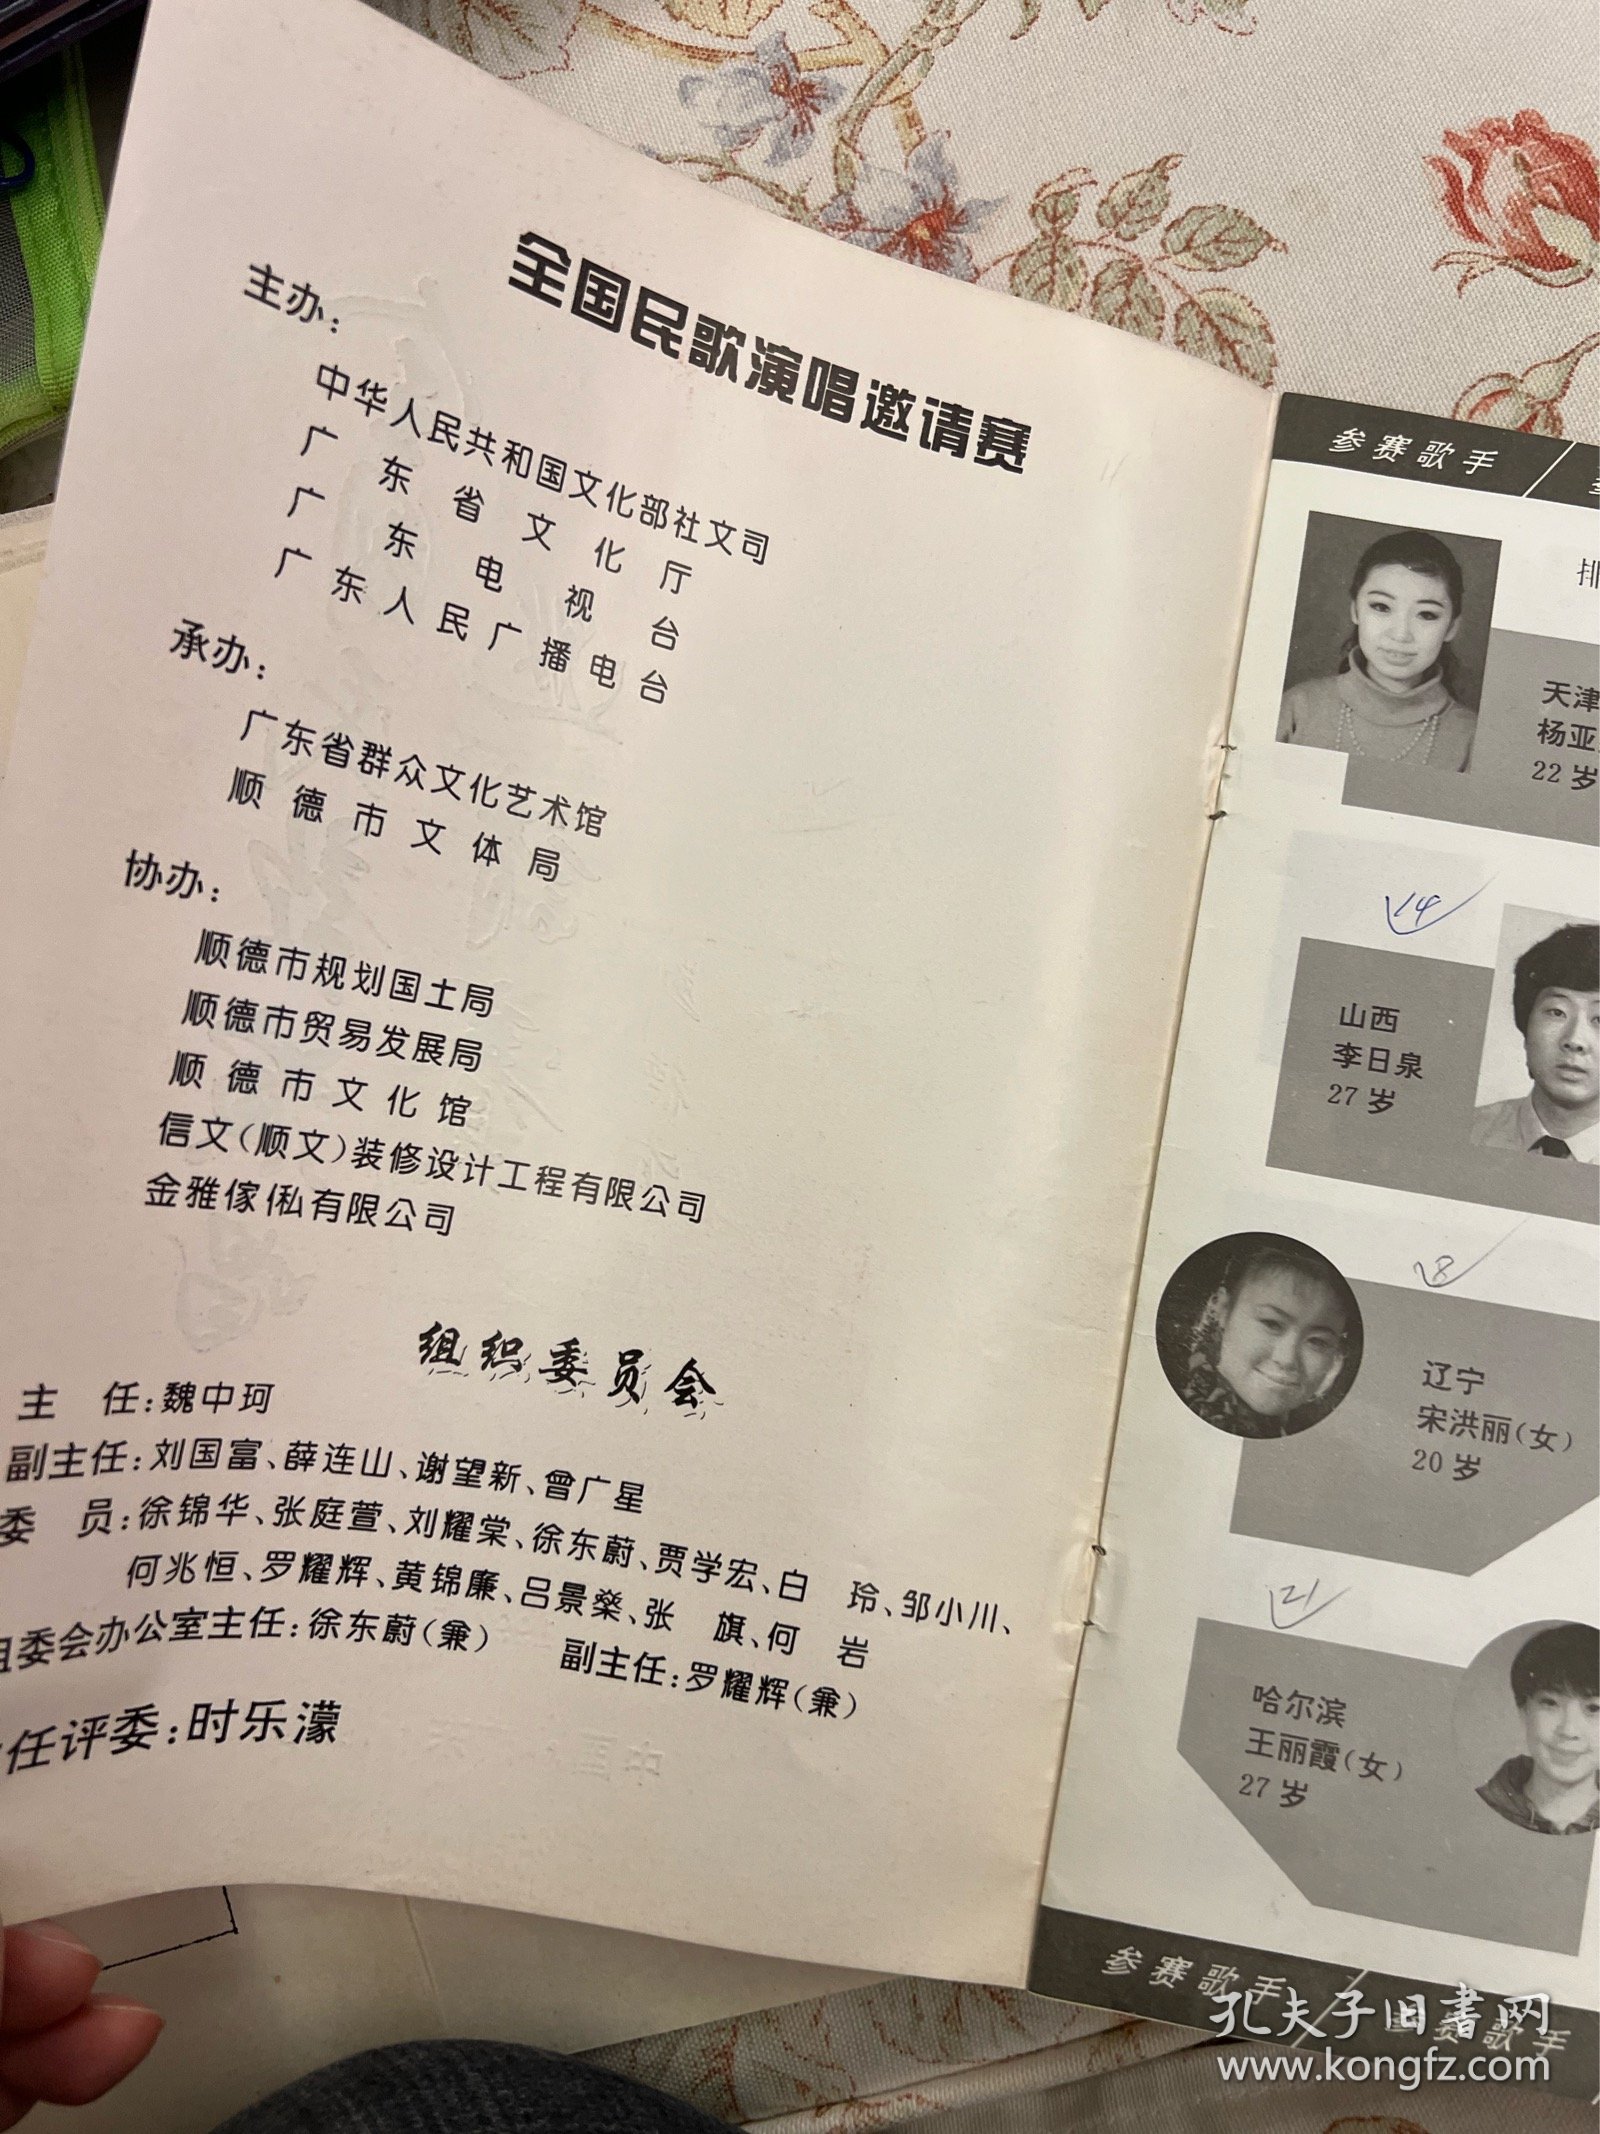 全国民歌演唱邀请赛
主办：
中华人民共和国文化部社文司
广东省文化厅
广东电视台
广东人民广播电台
承办：
广东省群众文化艺术馆
顺德市文体局
协办：
顺德市规划国土局
顺德市贸易发展局
顺德市文化馆
信文(顺文)装修设计工程有限公司
金雅傢俬有限公司
组织委员会
主　任：魏中珂
副主任：刘国富、薛连山、谢望新、曾广星
委　员：徐锦华、张庭萱、刘耀棠、徐东蔚、贾学宏、白　玲、邹小川、
何兆恒、罗耀辉、黄锦廉、吕景燊、张　旗、何　岩
组委会办公室主任：徐东蔚(兼)　副主任：罗耀辉(兼)
任评委：时乐濛
参赛歌手
排
天津
杨亚
22岁
14
山西
李日泉
27岁
18
辽宁
宋洪丽(女)
20岁
21
哈尔滨
王丽霞(女)
27岁
参赛歌手
参赛歌手
孔夫子旧书网
www.kongfz.com